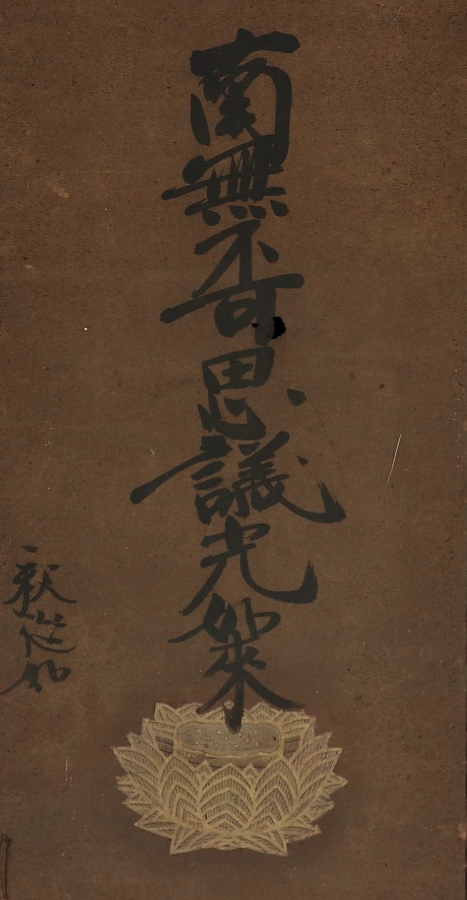 南無不可思議光如來
釈如